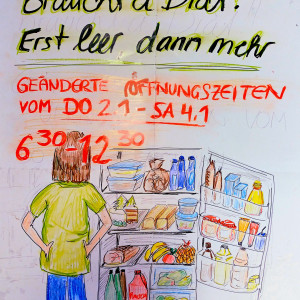 Erst leer, dann mehr
GEÄNDERTE ÖFFNUNGSZEITEN
VOM DO 2.1 - SA 4.1
6³⁰ - 12³⁰